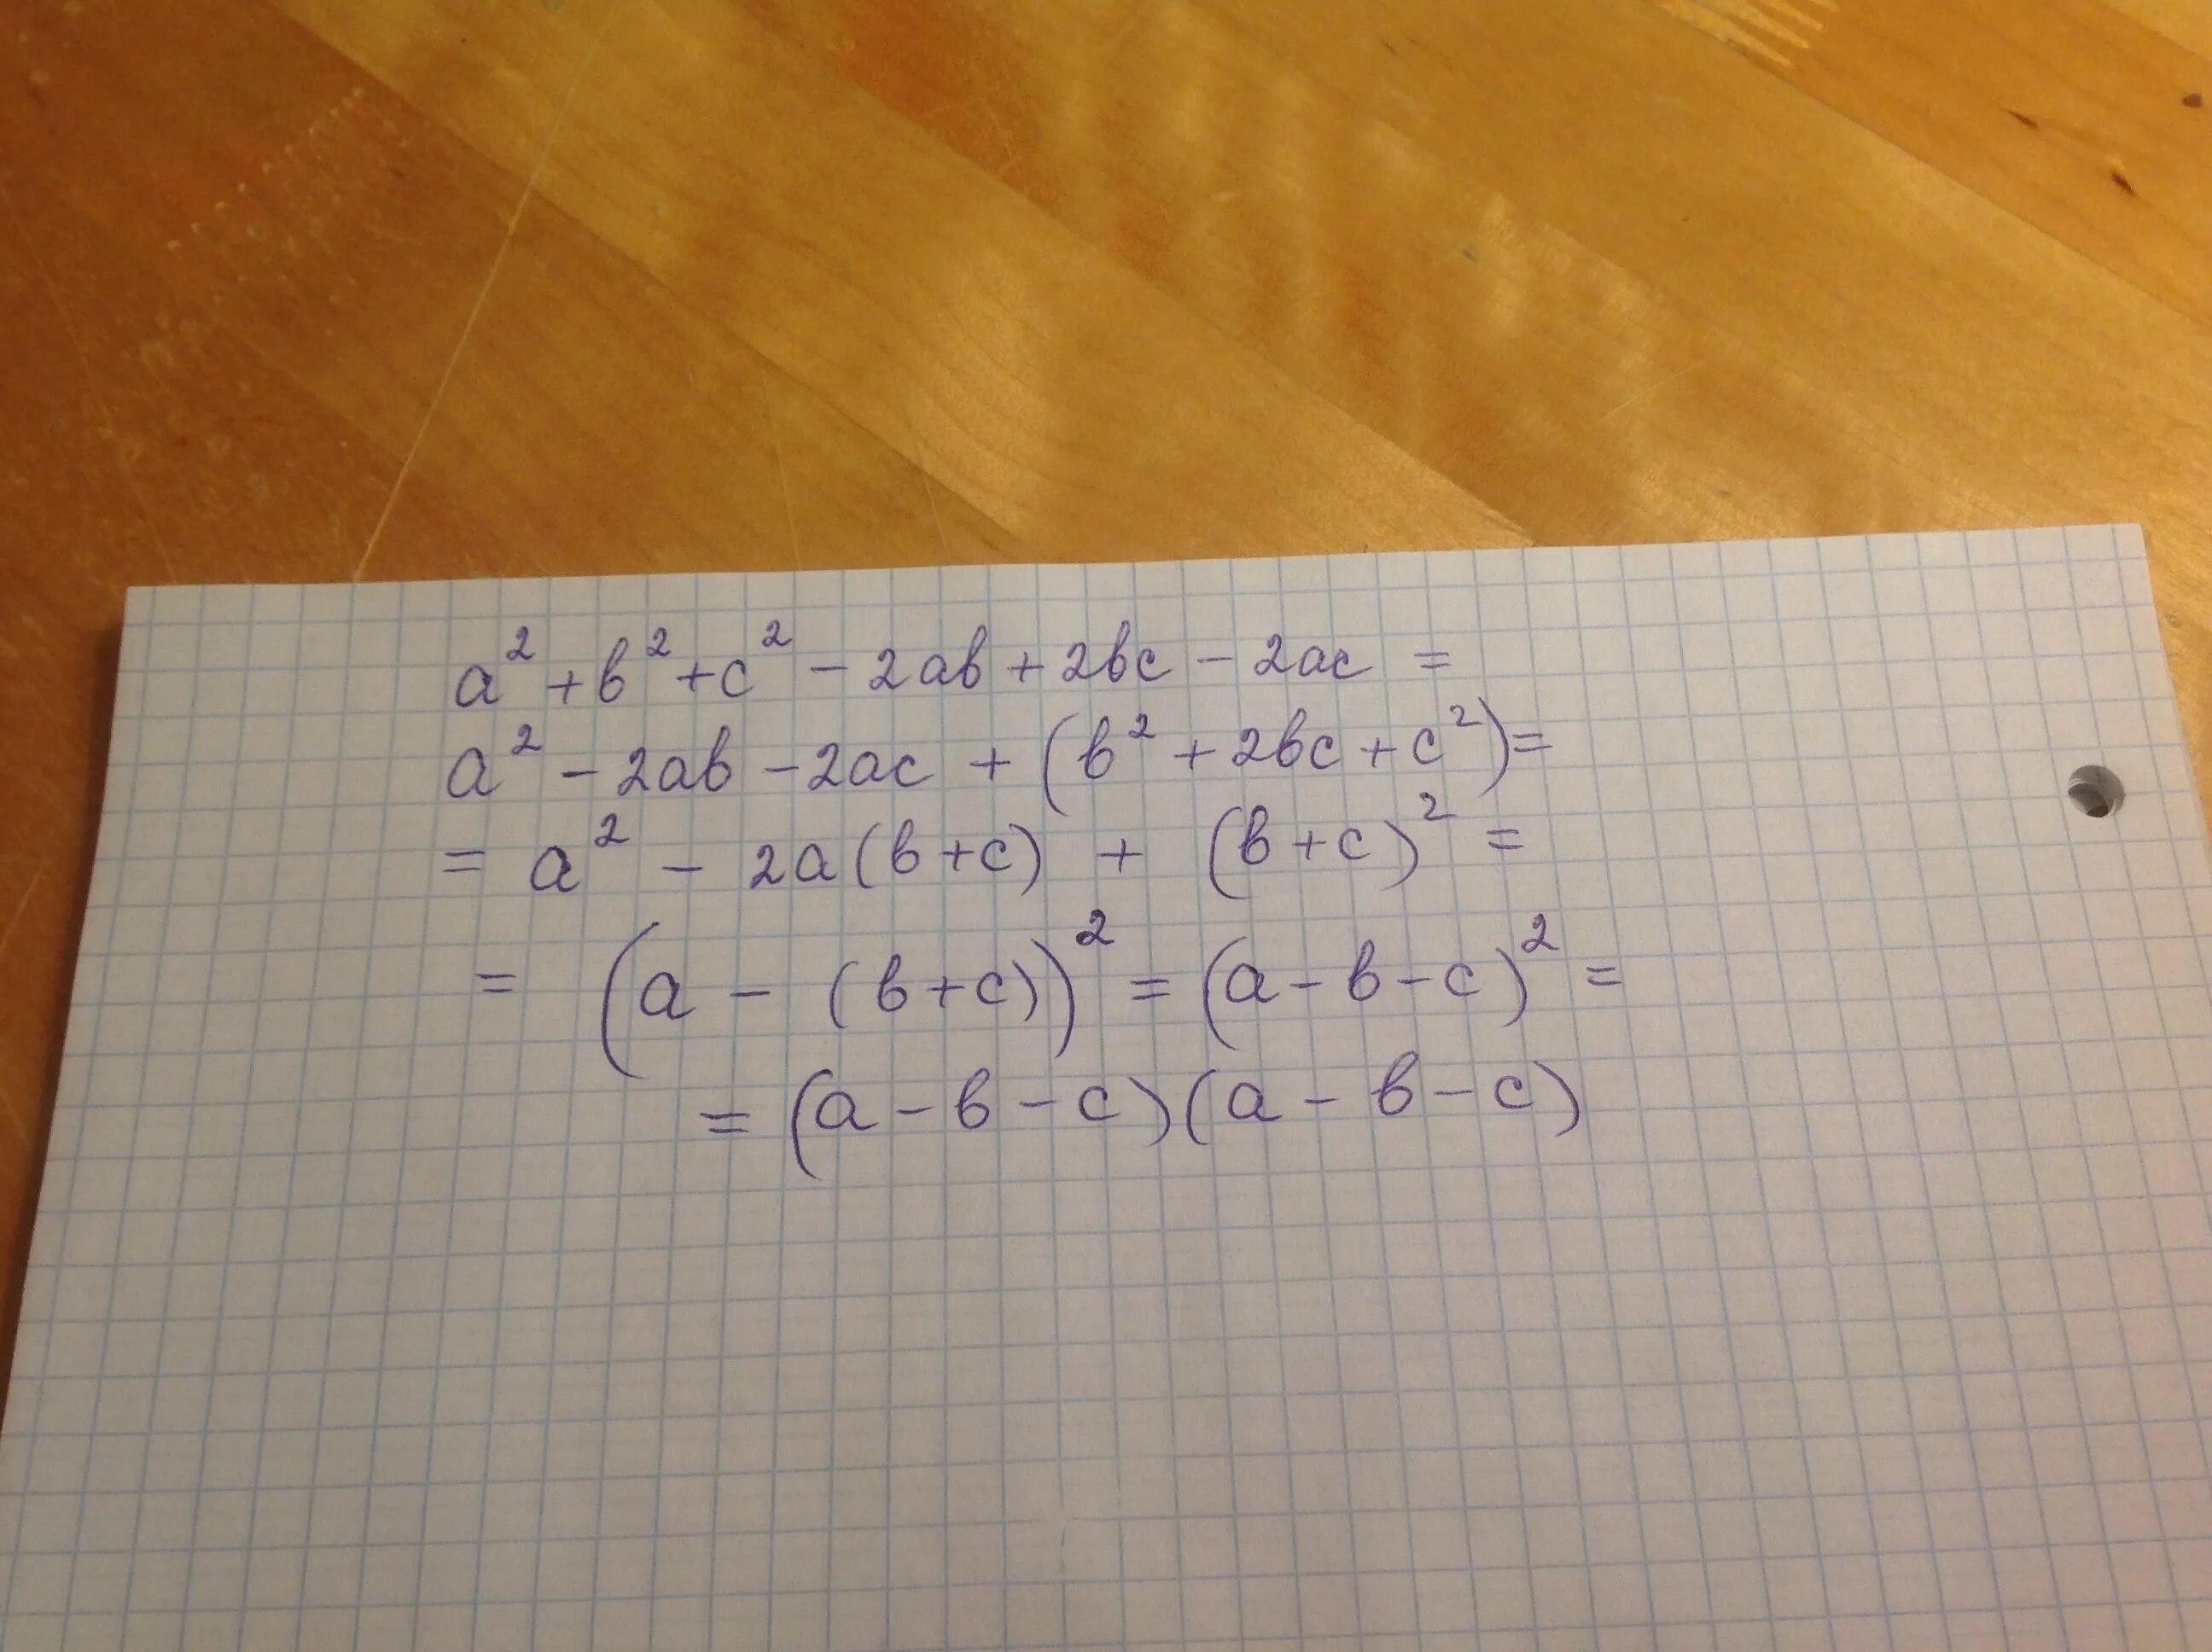 a² + b² + c² − 2ab + 2bc − 2ac =
a² − 2ab − 2ac + (b² + 2bc + c²) =
= a² − 2a(b+c) + (b+c)² =
= (a − (b+c))² = (a−b−c)² =
= (a−b−c)(a−b−c)